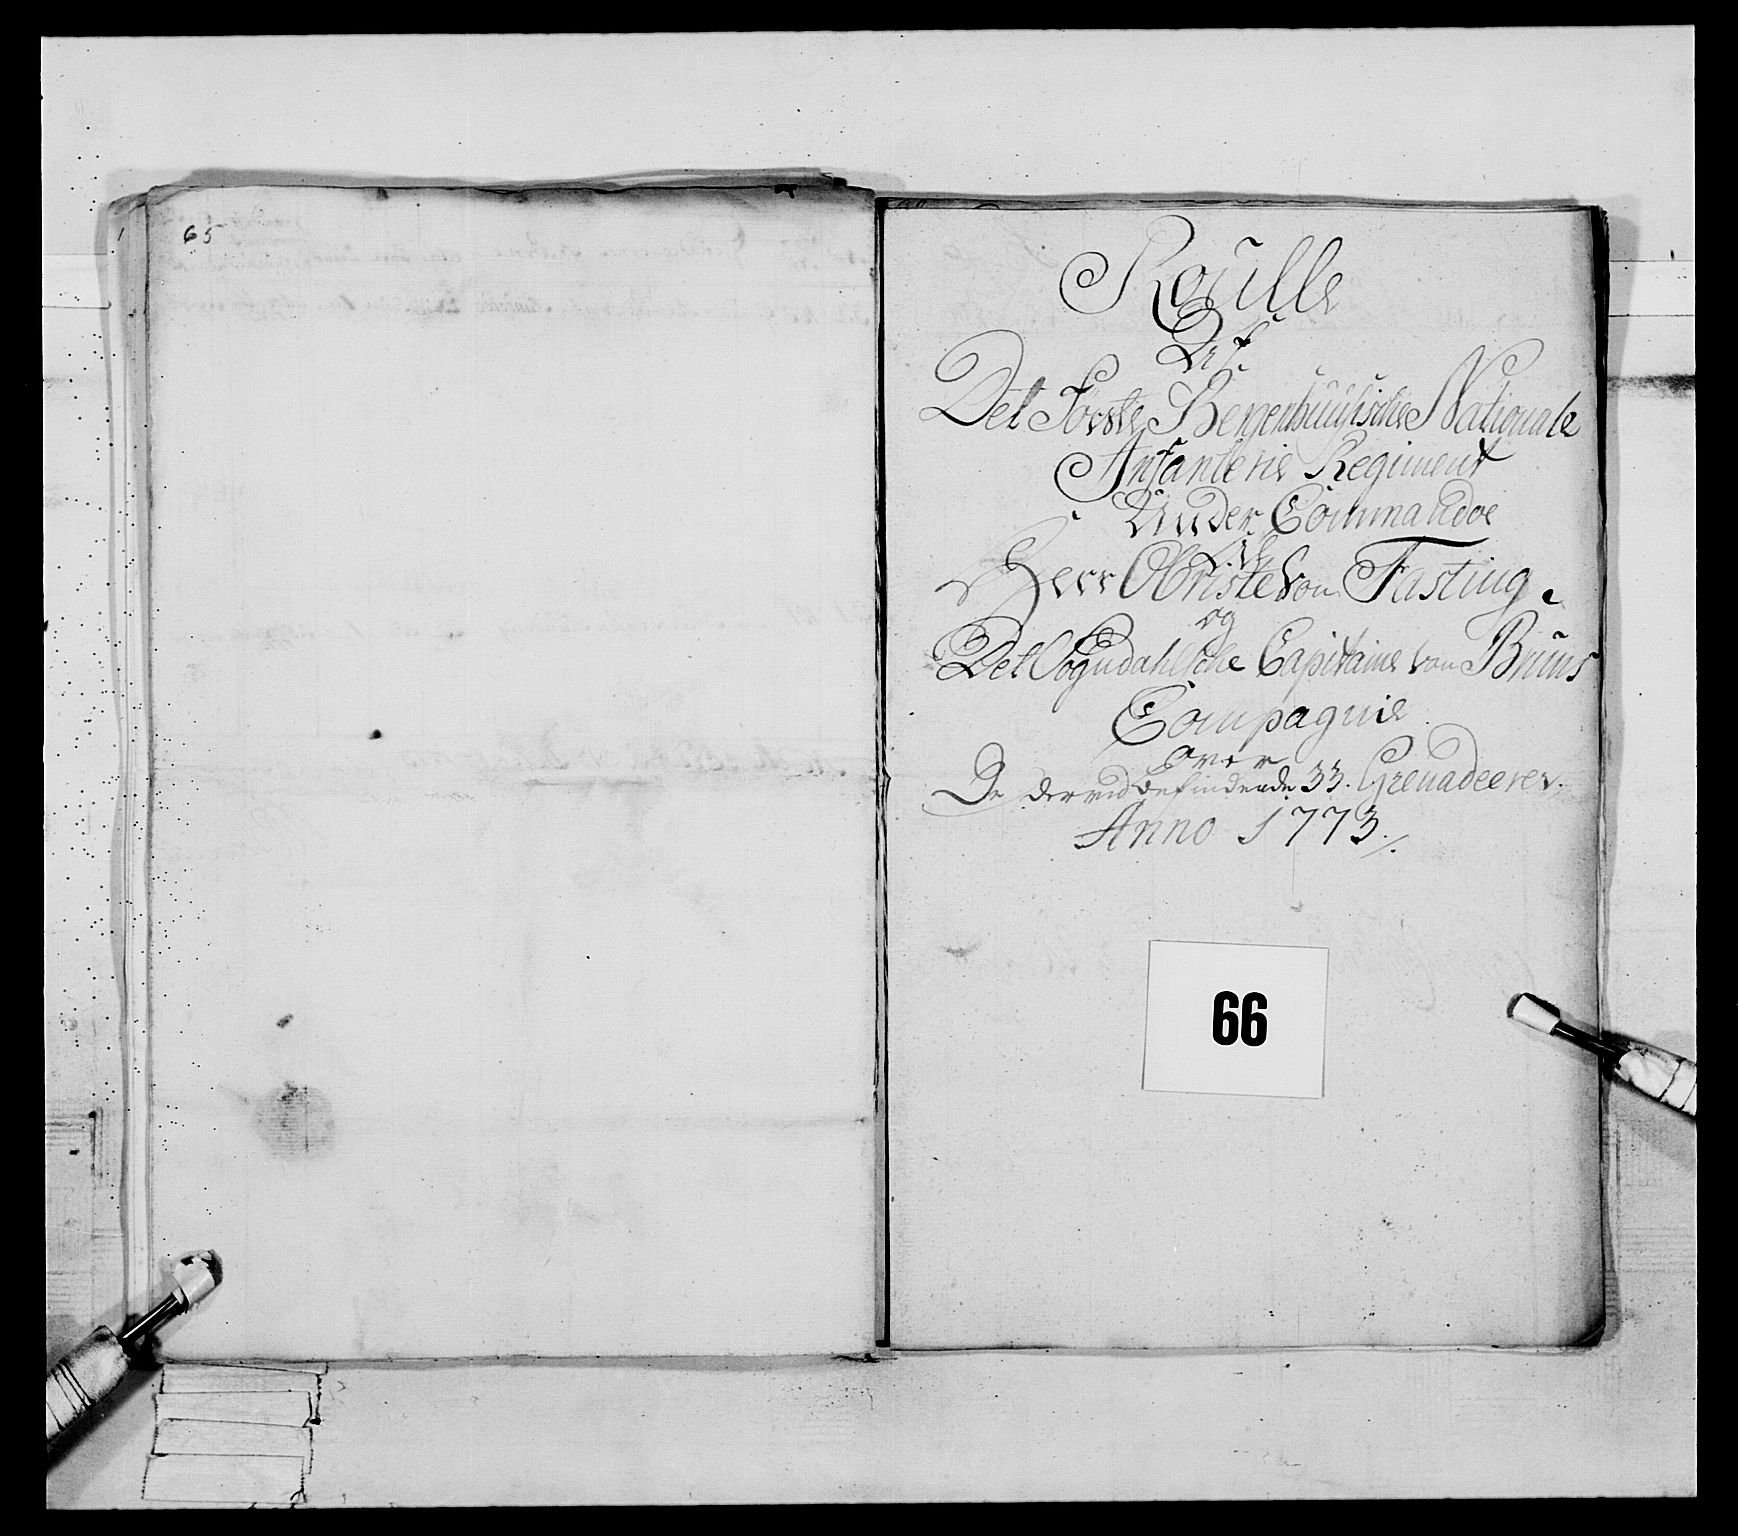 65
Roülle
Af
Det Førstе Bergenhuusische Nationale
Infanterie Regiment
Under Commandoe
af
Herr Obriste von Fasting.
og
Det Sogndahlsche Capitaine von Bruns
Compagnie
over
De derved befindende 33. Grenadeerer.
Anno 1773./.
66